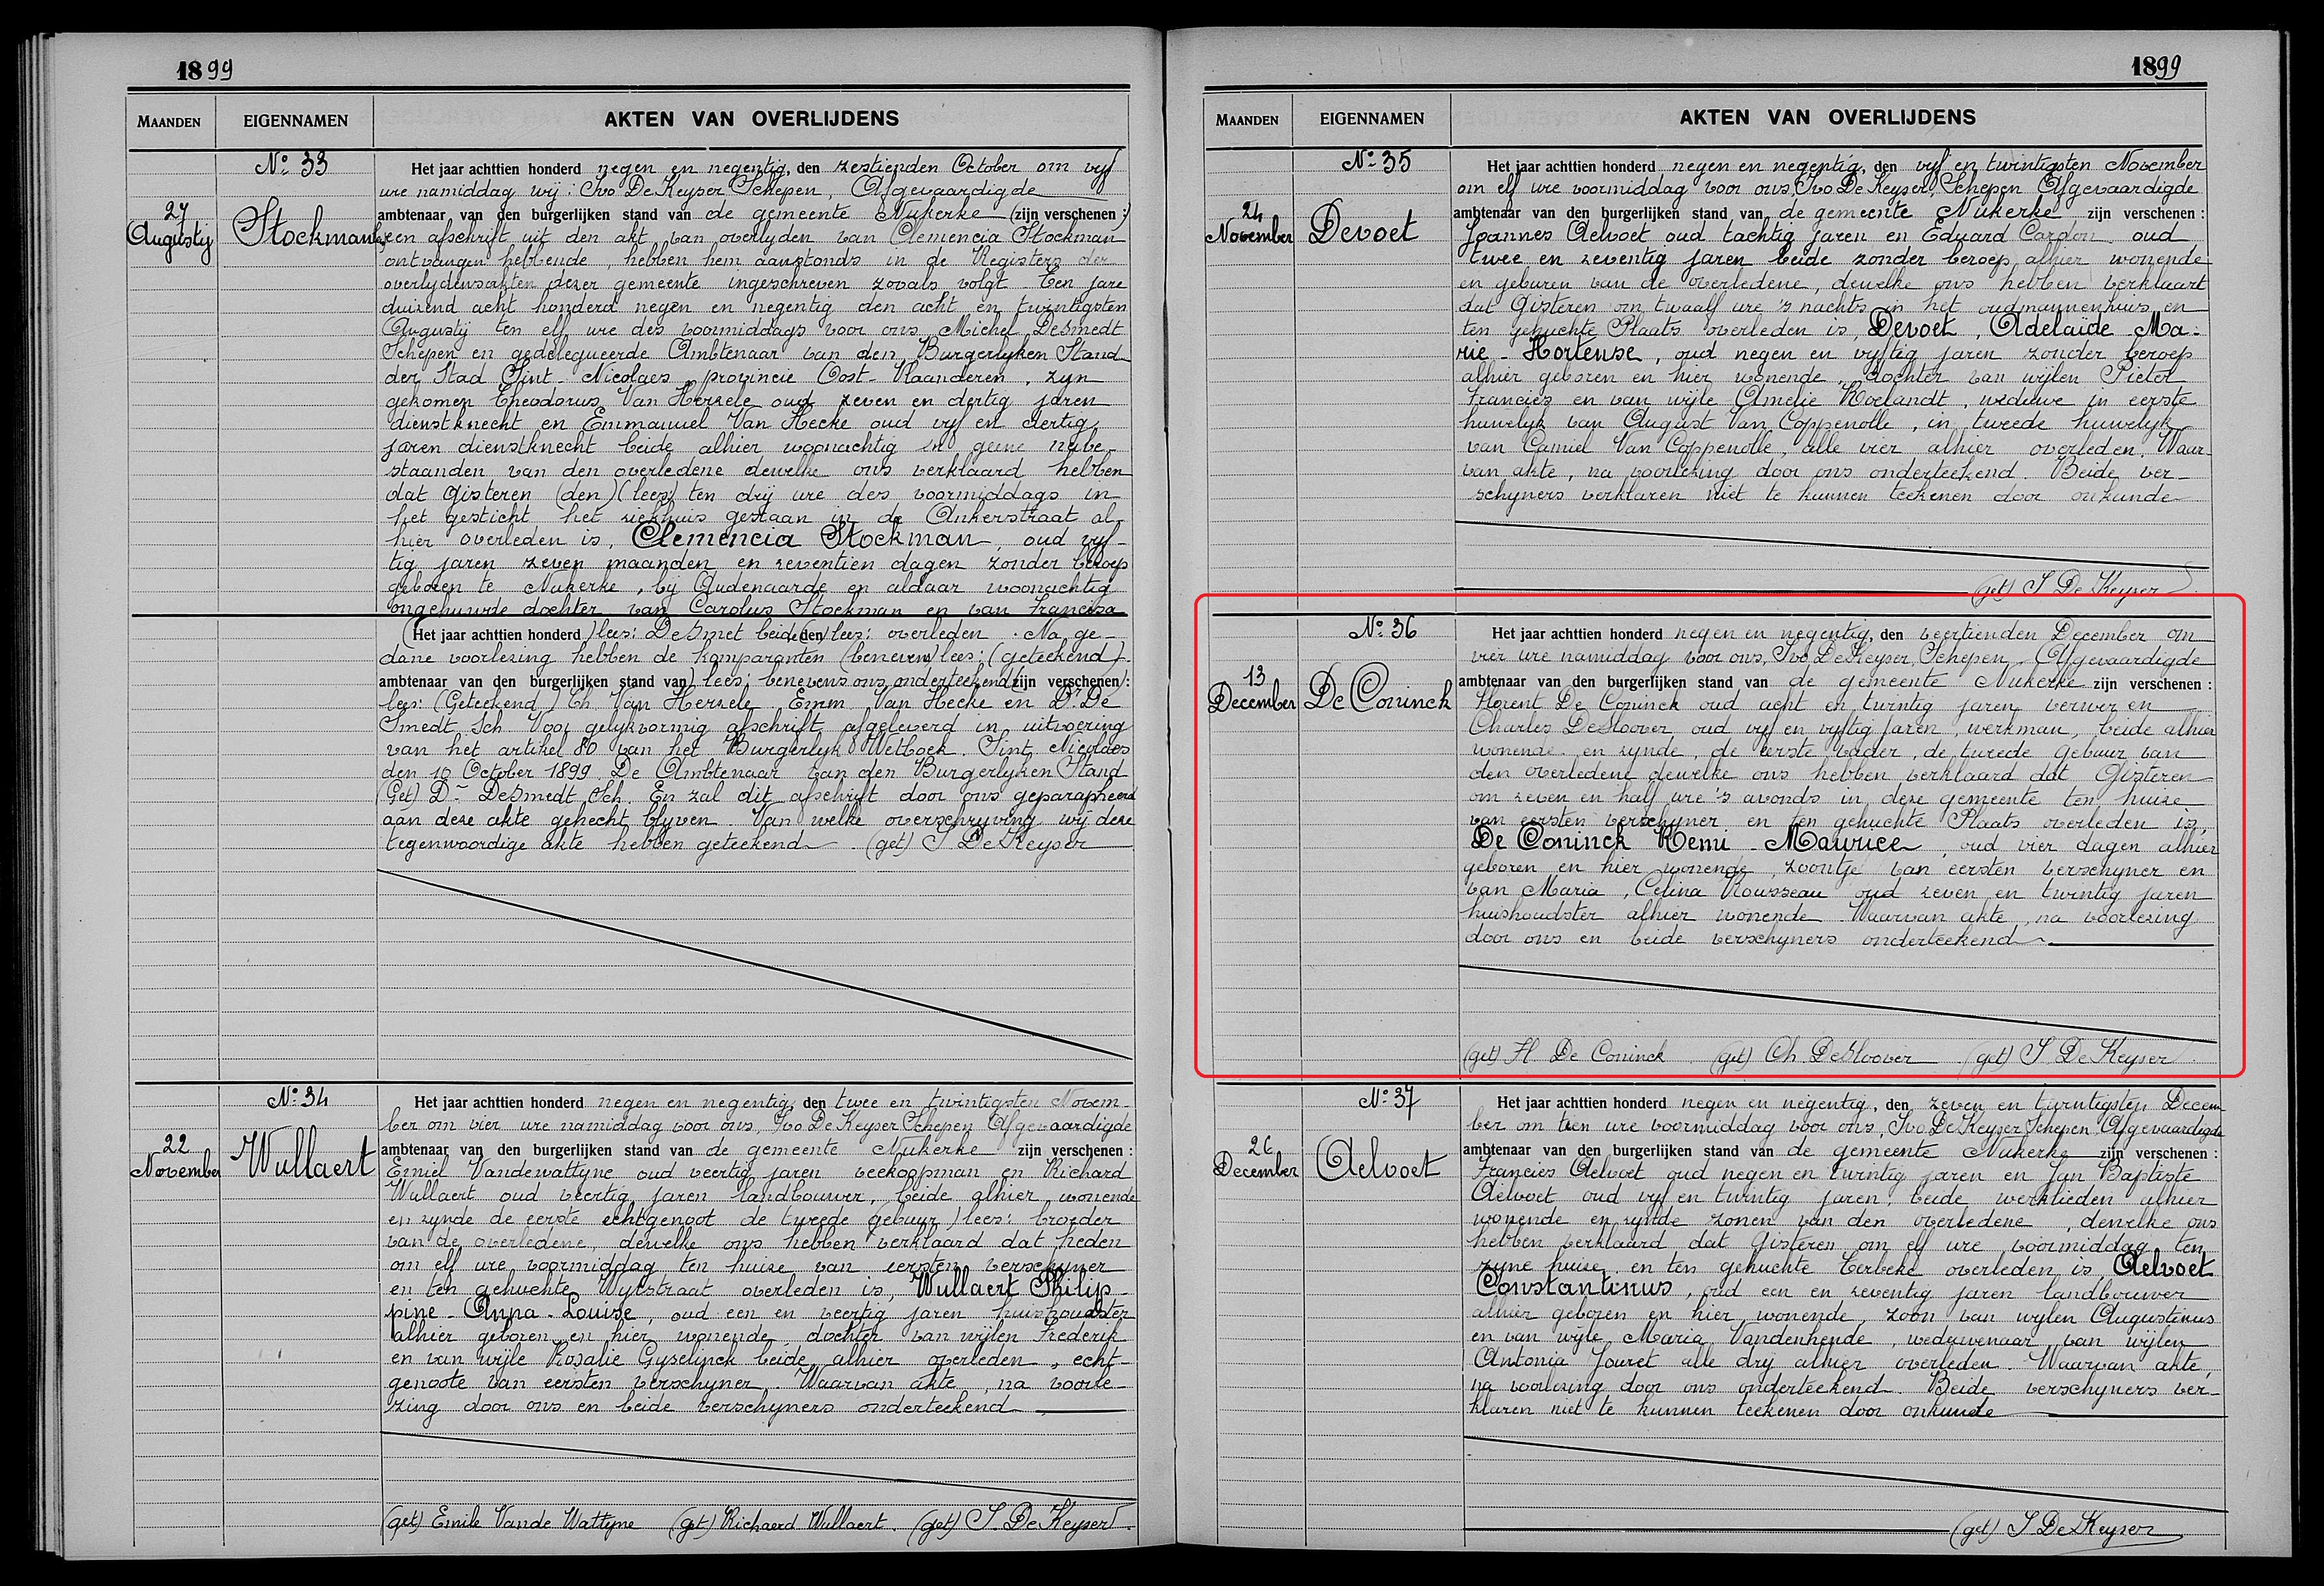 1899
MAANDEN
EIGENNAMEN
AKTEN VAN OVERLIJDENS
No 33
27
Augustij
Stockman
Het jaar achttien honderd negen en negentig, den zestienden October om vyf
ure namiddag wij: Ivo De Keyser Schepen, Afgevaardigde
ambtenaar van den burgerlijken stand van de gemeente Nukerke (zijn verschenen:)
een afschrift uit den akt van overlyden van Clemencia Stockman
ontvangen hebbende, hebben hem aanstonds in de Registers der
overlydensakten dezer gemeente ingeschreven zooals volgt. Ten jare
duizend acht honderd negen en negentig den acht en twintigsten
Augustij ten elf ure des voormiddags voor ons Michel DeSmedt
Schepen en gedelegueerde Ambtenaar van den Burgerlyken Stand
der Stad Sint-Nicolaes provincie Oost-Vlaanderen, zyn
gekomen Theodorus Van Herzele oud zeven en dertig jaren
dienstknecht en Emmanuel Van Hecke oud vyf en dertig
jaren dienstknecht beide alhier woonachtig en geene nabe-
staanden van den overledene dewelke ons verklaard hebben
dat Gisteren (den) (lees) ten drij ure des voormiddags in
het gesticht het ziekhuis gestaan in de Ankerstraat al-
hier overleden is, Clemencia Stockman, oud vyf-
tig jaren zeven maanden en zeventien dagen zonder beroep
geboren te Nukerke, bij Audenaarde en aldaar woonachtig
ongehuwde dochter van Carolus Stockman en van Francisca
(Het jaar achttien honderd) lees: DeSmet beide (den) lees: overleden. Na ge-
dane voorlezing hebben de komparanten (benevens) lees: (geteekend)
ambtenaar van den burgerlijken stand van) lees: benevens ons onderteekend (zijn verschenen:
lees: (Geteekend) Th. Van Herzele Emm. Van Hecke en Dr. De
Smedt Sch. Voor gelykvormig afschrift afgeleverd in uitvoering
van het artikel 80 van het Burgerlyk Wetboek. Sint Nicolaes
den 10 October 1899. De Ambtenaar van den Burgerlyken Stand
(Get) Dr DeSmedt Sch. En zal dit afschrift door ons geparapheerd
aan deze akte gehecht blyven. Van welke overschryving wij deze
tegenwoordige akte hebben geteekend. (get) I De Keyser
No 34
22
November
Wullaert
Het jaar achttien honderd negen en negentig, den twee en twintigsten Novem-
ber om vier ure namiddag voor ons, Ivo De Keyser Schepen Afgevaardigde
ambtenaar van den burgerlijken stand van de gemeente Nukerke zijn verschenen:
Emiel Vandewattyne oud veertig jaren veekoopman en Richard
Wullaert oud veertig jaren landbouwer, beide alhier wonende
en zynde de eerste echtgenoot de tweede gebuur) lees: broeder
van de overledene, dewelke ons hebben verklaard dat heden
om elf ure voormiddag ten huize van eersten verschyner
en ten gehuchte Wytstraat overleden is, Wullaert Philip-
pine-Anna-Louise, oud een en veertig jaren huishoudster
alhier geboren en hier wonende, dochter van wijlen Frederik
en van wijle Rosalie Gyselinck beide alhier overleden, echt-
genoote van eersten verschyner. Waarvan akte, na voorle-
zing door ons en beide verschyners onderteekend
(get) Emile Vande Wattyne (get) Richaerd Wullaert. (get) I. De Keyser
1899
MAANDEN
EIGENNAMEN
AKTEN VAN OVERLIJDENS
No 35
24
November
Devoet
Het jaar achttien honderd negen en negentig, den vyf en twintigsten November
om elf ure voormiddag voor ons, Ivo De Keyser, Schepen Afgevaardigde
ambtenaar van den burgerlijken stand van de gemeente Nukerke zijn verschenen:
Joannes Aelvoet oud tachtig jaren en Eduard Cardon oud
twee en zeventig jaren beide zonder beroep alhier wonende
en geburen van de overledene, dewelke ons hebben verklaart
dat Gisteren om twaalf ure 's nachts in het oudmannenhuis en
ten gehuchte Plaats overleden is, Devoet, Adelaïde-Ma-
rie-Hortense, oud negen en vyftig jaren zonder beroep
alhier geboren en hier wonende, dochter van wijlen Pieter
Francies en van wijle Amelie Roelandt, weduwe in eerste
huwelyk van August Van Coppenolle, in tweede huwelyk
van Camiel Van Coppenolle, alle vier alhier overleden. Waar-
van akte, na voorlezing door ons onderteekend. Beide ver-
schyners verklaren niet te kunnen teekenen door onkunde
(get) I De Keyser
No 36
13
December
De Coninck
Het jaar achttien honderd negen en negentig, den veertienden December om
vier ure namiddag voor ons, Ivo De Keyser, Schepen, Afgevaardigde
ambtenaar van den burgerlijken stand van de gemeente Nukerke zijn verschenen:
Florent De Coninck oud acht en twintig jaren verwer en
Charles DeSloover oud vyf en vyftig jaren, werkman, beide alhier
wonende en zynde, de eerste vader, de tweede gebuur van
den overledene dewelke ons hebben verklaard dat Gisteren
om zeven en half ure 's avonds in deze gemeente ten huize
van eersten verschyner en ten gehuchte Plaats overleden is,
De Coninck Remi-Maurice, oud vier dagen alhier
geboren en hier wonende, zoontje van eersten verschyner en
van Maria, Celina Rousseau oud zeven en twintig jaren
huishoudster alhier wonende. Waarvan akte, na voorlezing
door ons en beide verschyners onderteekend
(get) Fl De Coninck. (get) Ch. DeSloover (get) I. De Keyser
No 37
26
December
Aelvoet
Het jaar achttien honderd negen en negentig, den zeven en twintigsten Decem-
ber om tien ure voormiddag voor ons, Ivo De Keyser Schepen Afgevaardigde
ambtenaar van den burgerlijken stand van de gemeente Nukerke zijn verschenen:
Francies Aelvoet oud negen en twintig jaren en Jan Baptiste
Aelvoet oud vyf en twintig jaren, beide werklieden alhier
wonende en zynde zonen van den overledene, dewelke ons
hebben verklaard dat Gisteren om elf ure voormiddag ten
zyne huize en ten gehuchte Terbeke overleden is, Aelvoet
Constantinus, oud een en zeventig jaren landbouwer
alhier geboren en hier wonende, zoon van wylen Augustinus
en van wyle Maria Vandenhende, weduwenaar van wylen
Antonia Jouret alle drij alhier overleden. Waarvan akte,
na voorlezing door ons onderteekend. Beide verschyners ver-
klaren niet te kunnen teekenen door onkunde
(get) I De Keyser